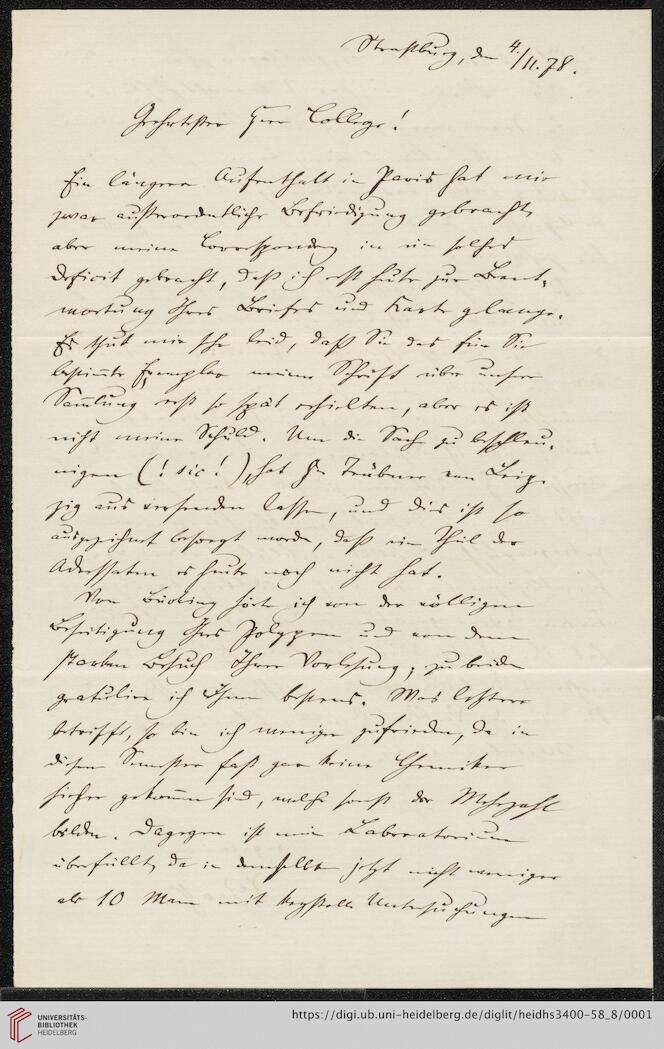 Strassburg, den 4./11.78.
Geehrtester Herr College!
Ein längerer Aufenthalt in Paris hat mir
zwar außerordentliche Befriedigung gebracht,
aber meine Correspondenz in ein solches
Deficit gebracht, daß ich erst heute zur Beant-
wortung Ihres Briefes und Karte gelange.
Es thut mir sehr leid, daß Sie das für Sie
bestimmte Exemplar meiner Schrift über unsere
Sammlung erst so spät erhielten, aber es ist
nicht meine Schuld. Um die Sache zu beschleu-
nigen (! sic!), hat Hr Trübner von Leip-
zig aus versenden lassen, und dies ist so
ausgezeichnet besorgt worden, daß ein Theil der
Adressaten es heute noch nicht hat.
Von Bücking hörte ich von der völligen
Beseitigung Ihres Polypen und von dem
starken Besuch Ihrer Vorlesung; zu beiden
gratulire ich Ihnen bestens. Was letztere
betrifft, so bin ich weniger zufrieden, da in
diesem Semester fast gar keine Chemiker
hieher gekommen sind, welche sonst die Mehrzahl
bilden. Dagegen ist mein Laboratorium
überfüllt, da in demselben jetzt nicht weniger
als 10 Mann mit krystall. Untersuchungen
UNIVERSITÄTS-
BIBLIOTHEK
HEIDELBERG
https://digi.ub.uni-heidelberg.de/diglit/heidhs3400-58_8/0001